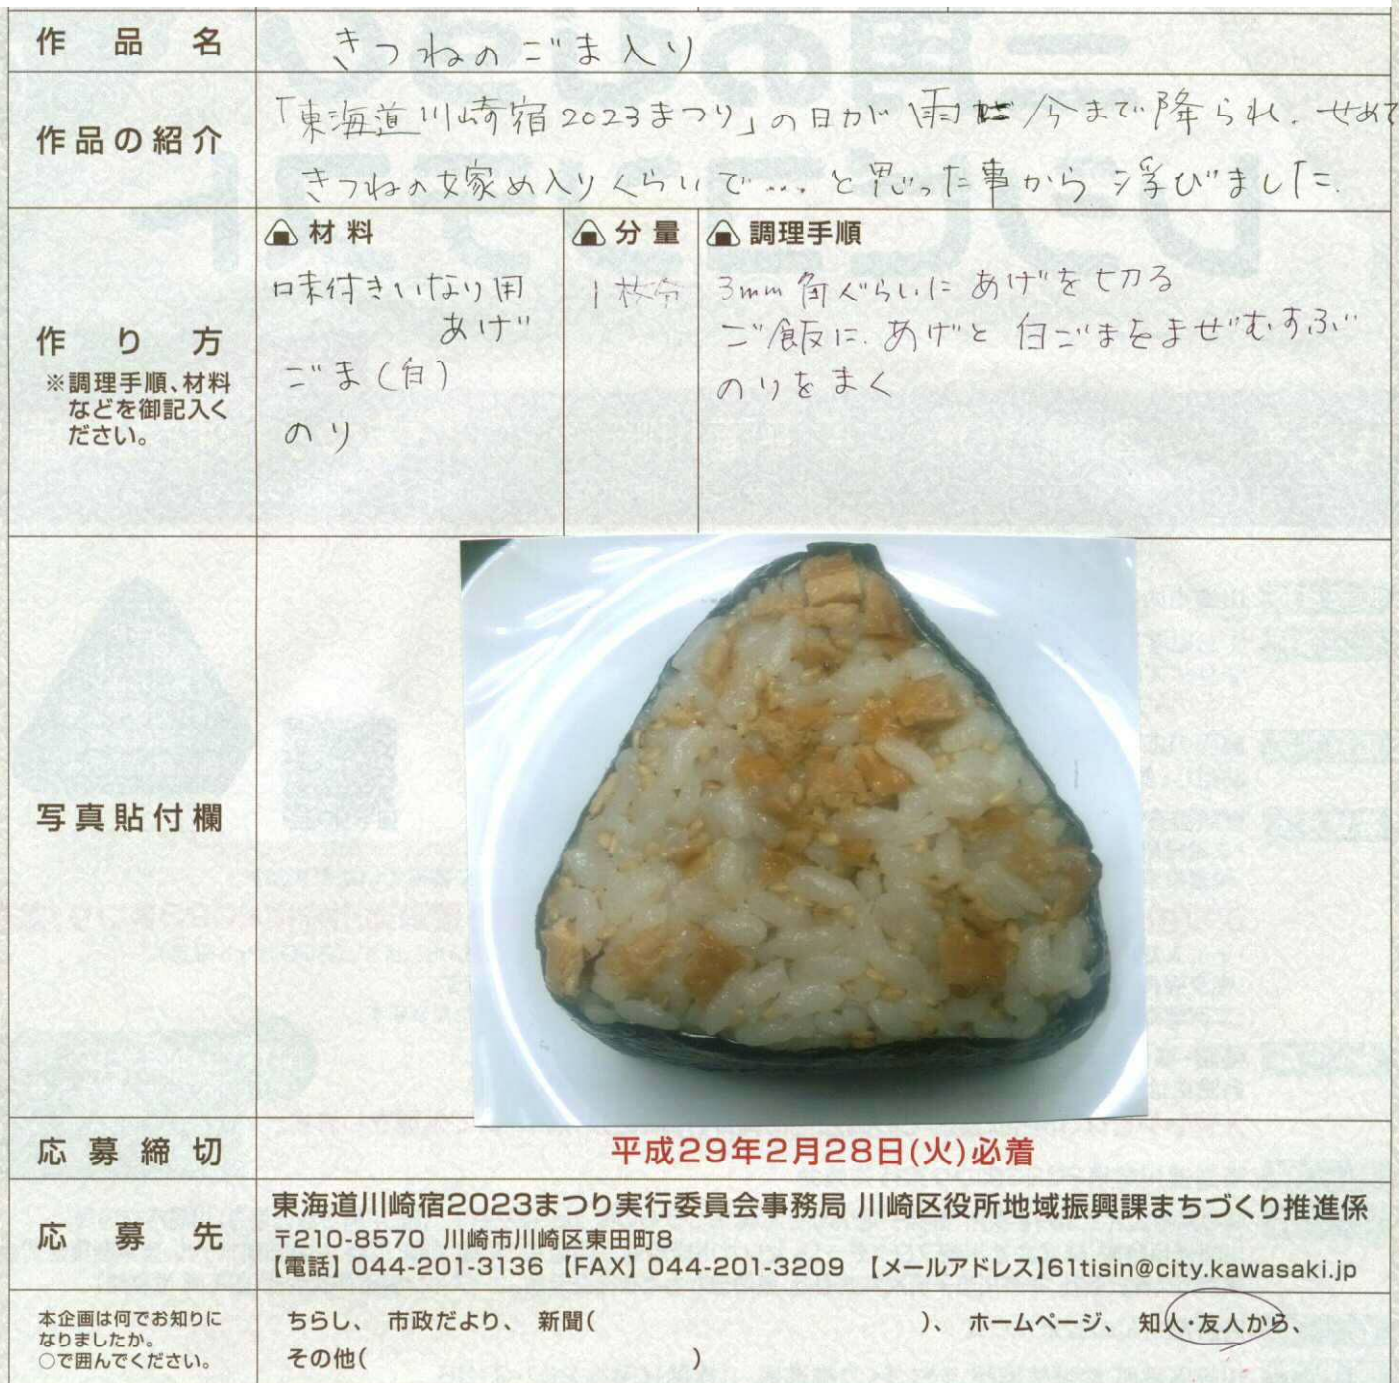 作品名
きつねのごま入り
作品の紹介
「東海道川崎宿2023まつり」の日が雨に今まで降られ、せめて
きつねの嫁め入りくらいで…と思った事から浮びました。
材料
分量
調理手順
作り方
※調理手順、材料
などを御記入く
ださい。
味付きいなり用
あげ
ごま(白)
のり
1枚分
3mm角ぐらいにあげを切る
ご飯に、あげと白ごまをまぜむすぶ
のりをまく
写真貼付欄
応募締切
平成29年2月28日(火)必着
応募先
東海道川崎宿2023まつり実行委員会事務局 川崎区役所地域振興課まちづくり推進係
〒210-8570 川崎市川崎区東田町8
【電話】044-201-3136【FAX】044-201-3209 【メールアドレス】61tisin@city.kawasaki.jp
本企画は何でお知りに
なりましたか。
○で囲んでください。
ちらし、 市政だより、 新聞( )、 ホームページ、 知人・友人から、
その他( )